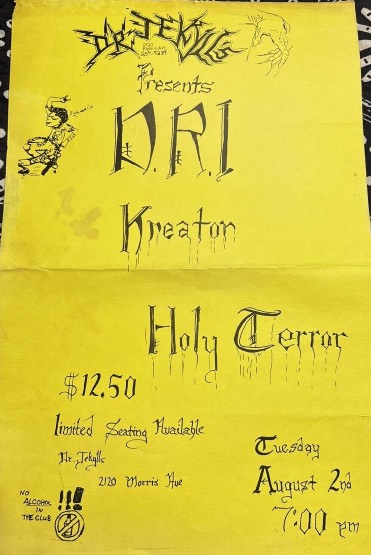 DR. JEKYLLS
Presents
D.R.I
Kreator
Holy Terror
$12.50
Limited Seating Available
Mr. Jekylls
2120 Morris Ave
Tuesday
August 2nd
7:00 pm
NO
ALCOHOL
IN
THE CLUB
!!!